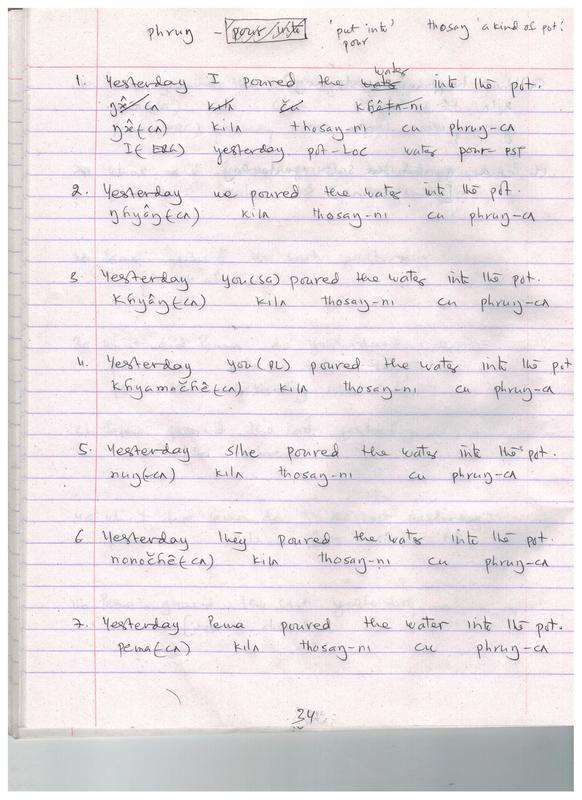 phrung - pour into 'put into' thosaŋ 'a kind of pot'
pour
water
1. Yesterday I poured the water into the pot.
ŋx̂ cʌ kilʌ
ŋx̂(cʌ) kilʌ thosaŋ-ni cu phruŋ-cʌ
I(ERG) yesterday pot-LOC water pour-PST
2. Yesterday we poured the water into the pot.
ŋhyâŋ(cʌ) kilʌ thosaŋ-ni cu phruŋ-cʌ
3. Yesterday you(SG) poured the water into the pot.
khyâŋ(cʌ) kilʌ thosaŋ-ni cu phruŋ-cʌ
4. Yesterday you(PL) poured the water into the pot
khyamočhê(cʌ) kilʌ thosaŋ-ni cu phruŋ-cʌ
5. Yesterday s/he poured the water into the pot.
nuŋ(cʌ) kilʌ thosaŋ-ni cu phruŋ-cʌ
6 Yesterday they poured the water into the pot.
nonočhê(cʌ) kilʌ thosaŋ-ni cu phruŋ-cʌ
7. Yesterday Pema poured the water into the pot.
pema(cʌ) kilʌ thosaŋ-ni cu phruŋ-cʌ
34